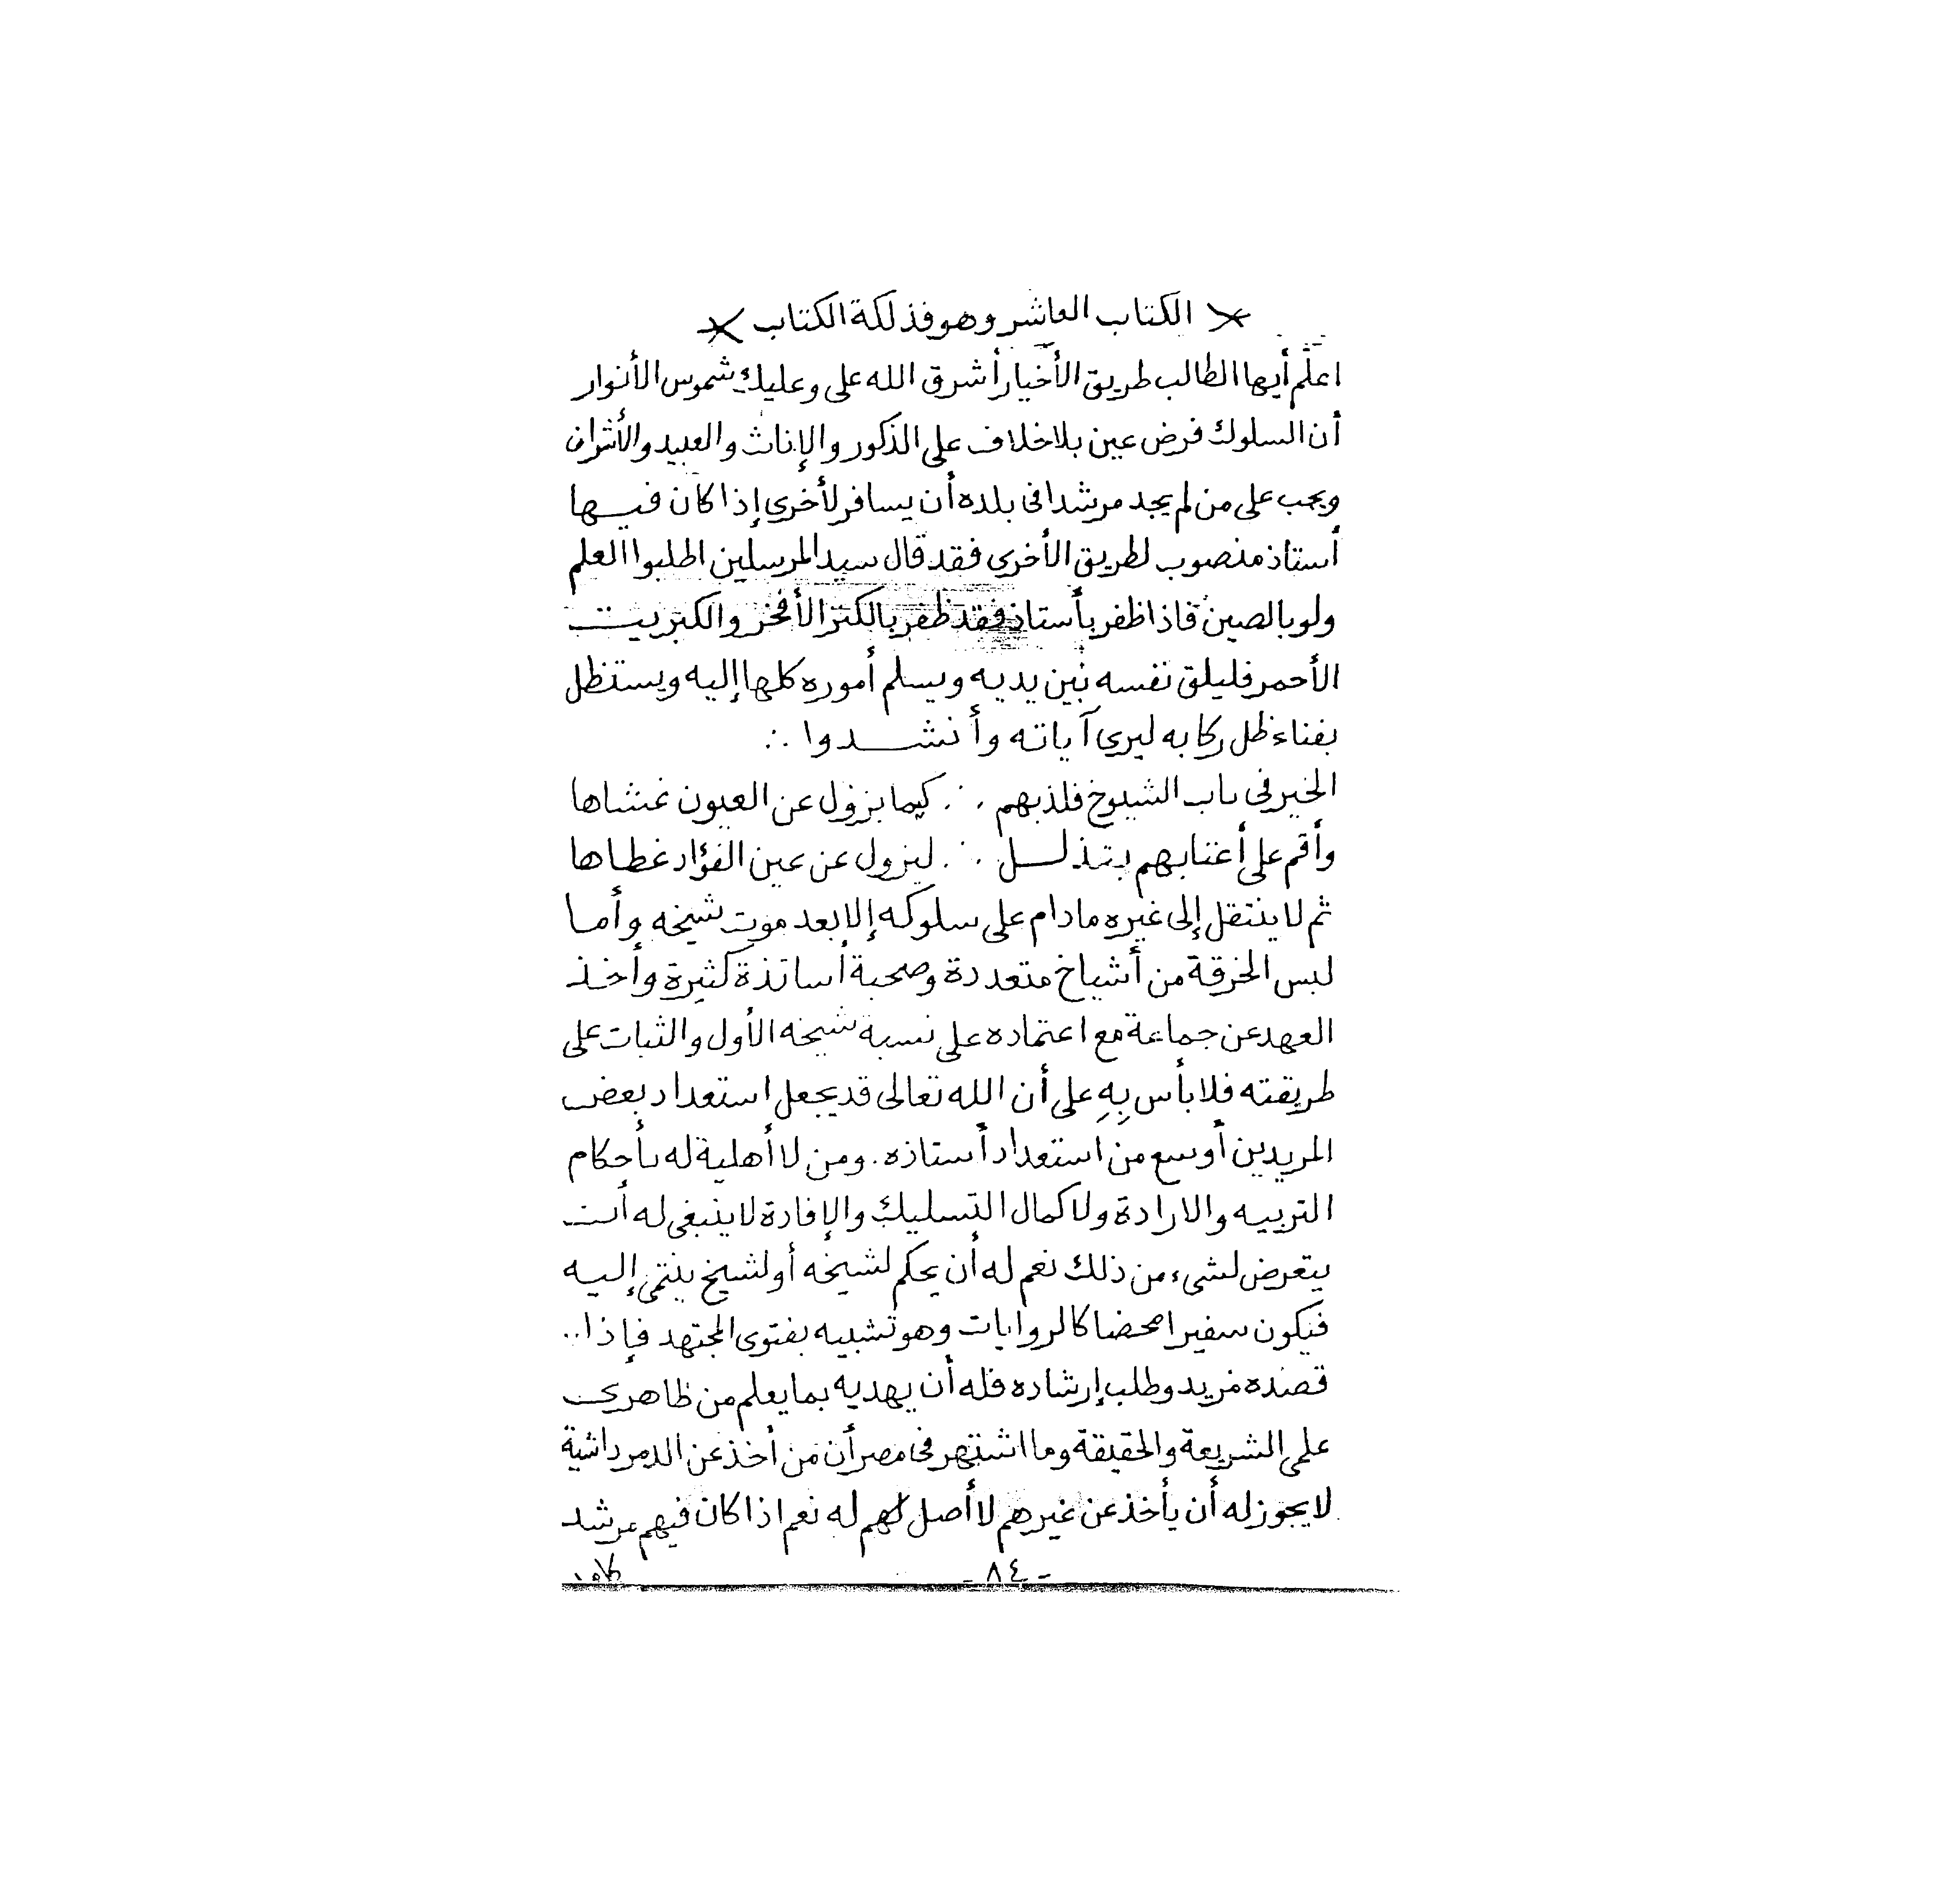 الكتاب العاشر وهو فذلكة الكتاب
اعلم أيها الطالب طريق الأخيار أشرق الله على وعليك شموس الأنوار
أن السلوك فرض عين بلا خلاف على الذكور والإناث والعبيد والأشراف
ويجب على من لم يجد مرشدا فى بلده أن يسافر لأخرى إذا كان فيها
أستاذ منصوب لطريق الأخرى فقد قال سيد المرسلين اطلبوا العلم
ولو بالصين فاذا ظفر بأستاذ فقد ظفر بالكنز الأفخر والكبريت
الأحمر فليلق نفسه بين يديه ويسلم أموره كلها إليه ويستظل
بفناء ظل ركابه ليرى آياته وأنشدوا ∴
الخير فى باب الشيوخ فلذ بهم ∴ كيما يزول عن العيون غشاها
وأقم على أعتابهم بتذلل ∴ ليزول عن عين الفؤاد غطاها
ثم لا ينتقل إلى غيره مادام على سلوكه إلا بعد موت شيخه وأما
لبس الخرقة من أشياخ متعددة وصحبة أساتذة كثيرة وأخذ
العهد عن جماعة مع اعتماده على نسبة شيخه الأول والثبات على
طريقته فلا بأس بِهِ على أن الله تعالى قد يجعل استعداد بعض
المريدين أوسع من استعداد أستاذه. ومن لا أهلية له بأحكام
التربيه والارادة ولا كمال التسليك والإفادة لا ينبغى له أن
يتعرض لشىء من ذلك نعم له أن يحكم لشيخه أو لشيخ ينتمى إليه
فيكون سفيرا محضا كالروايات وهو تشبيه بفتوى المجتهد فإذا..
قصده مريد وطلب إرشاده فله أن يهديه بما يعلم من ظاهرى
علمى الشريعة والحقيقة وما اشتهر فى مصر أن من أخذ عن الدمرداشية
لا يجوز له أن يأخذ عن غيرهم لا أصل لهم له نعم اذا كان فيهم مرشد
- ٨٤ -